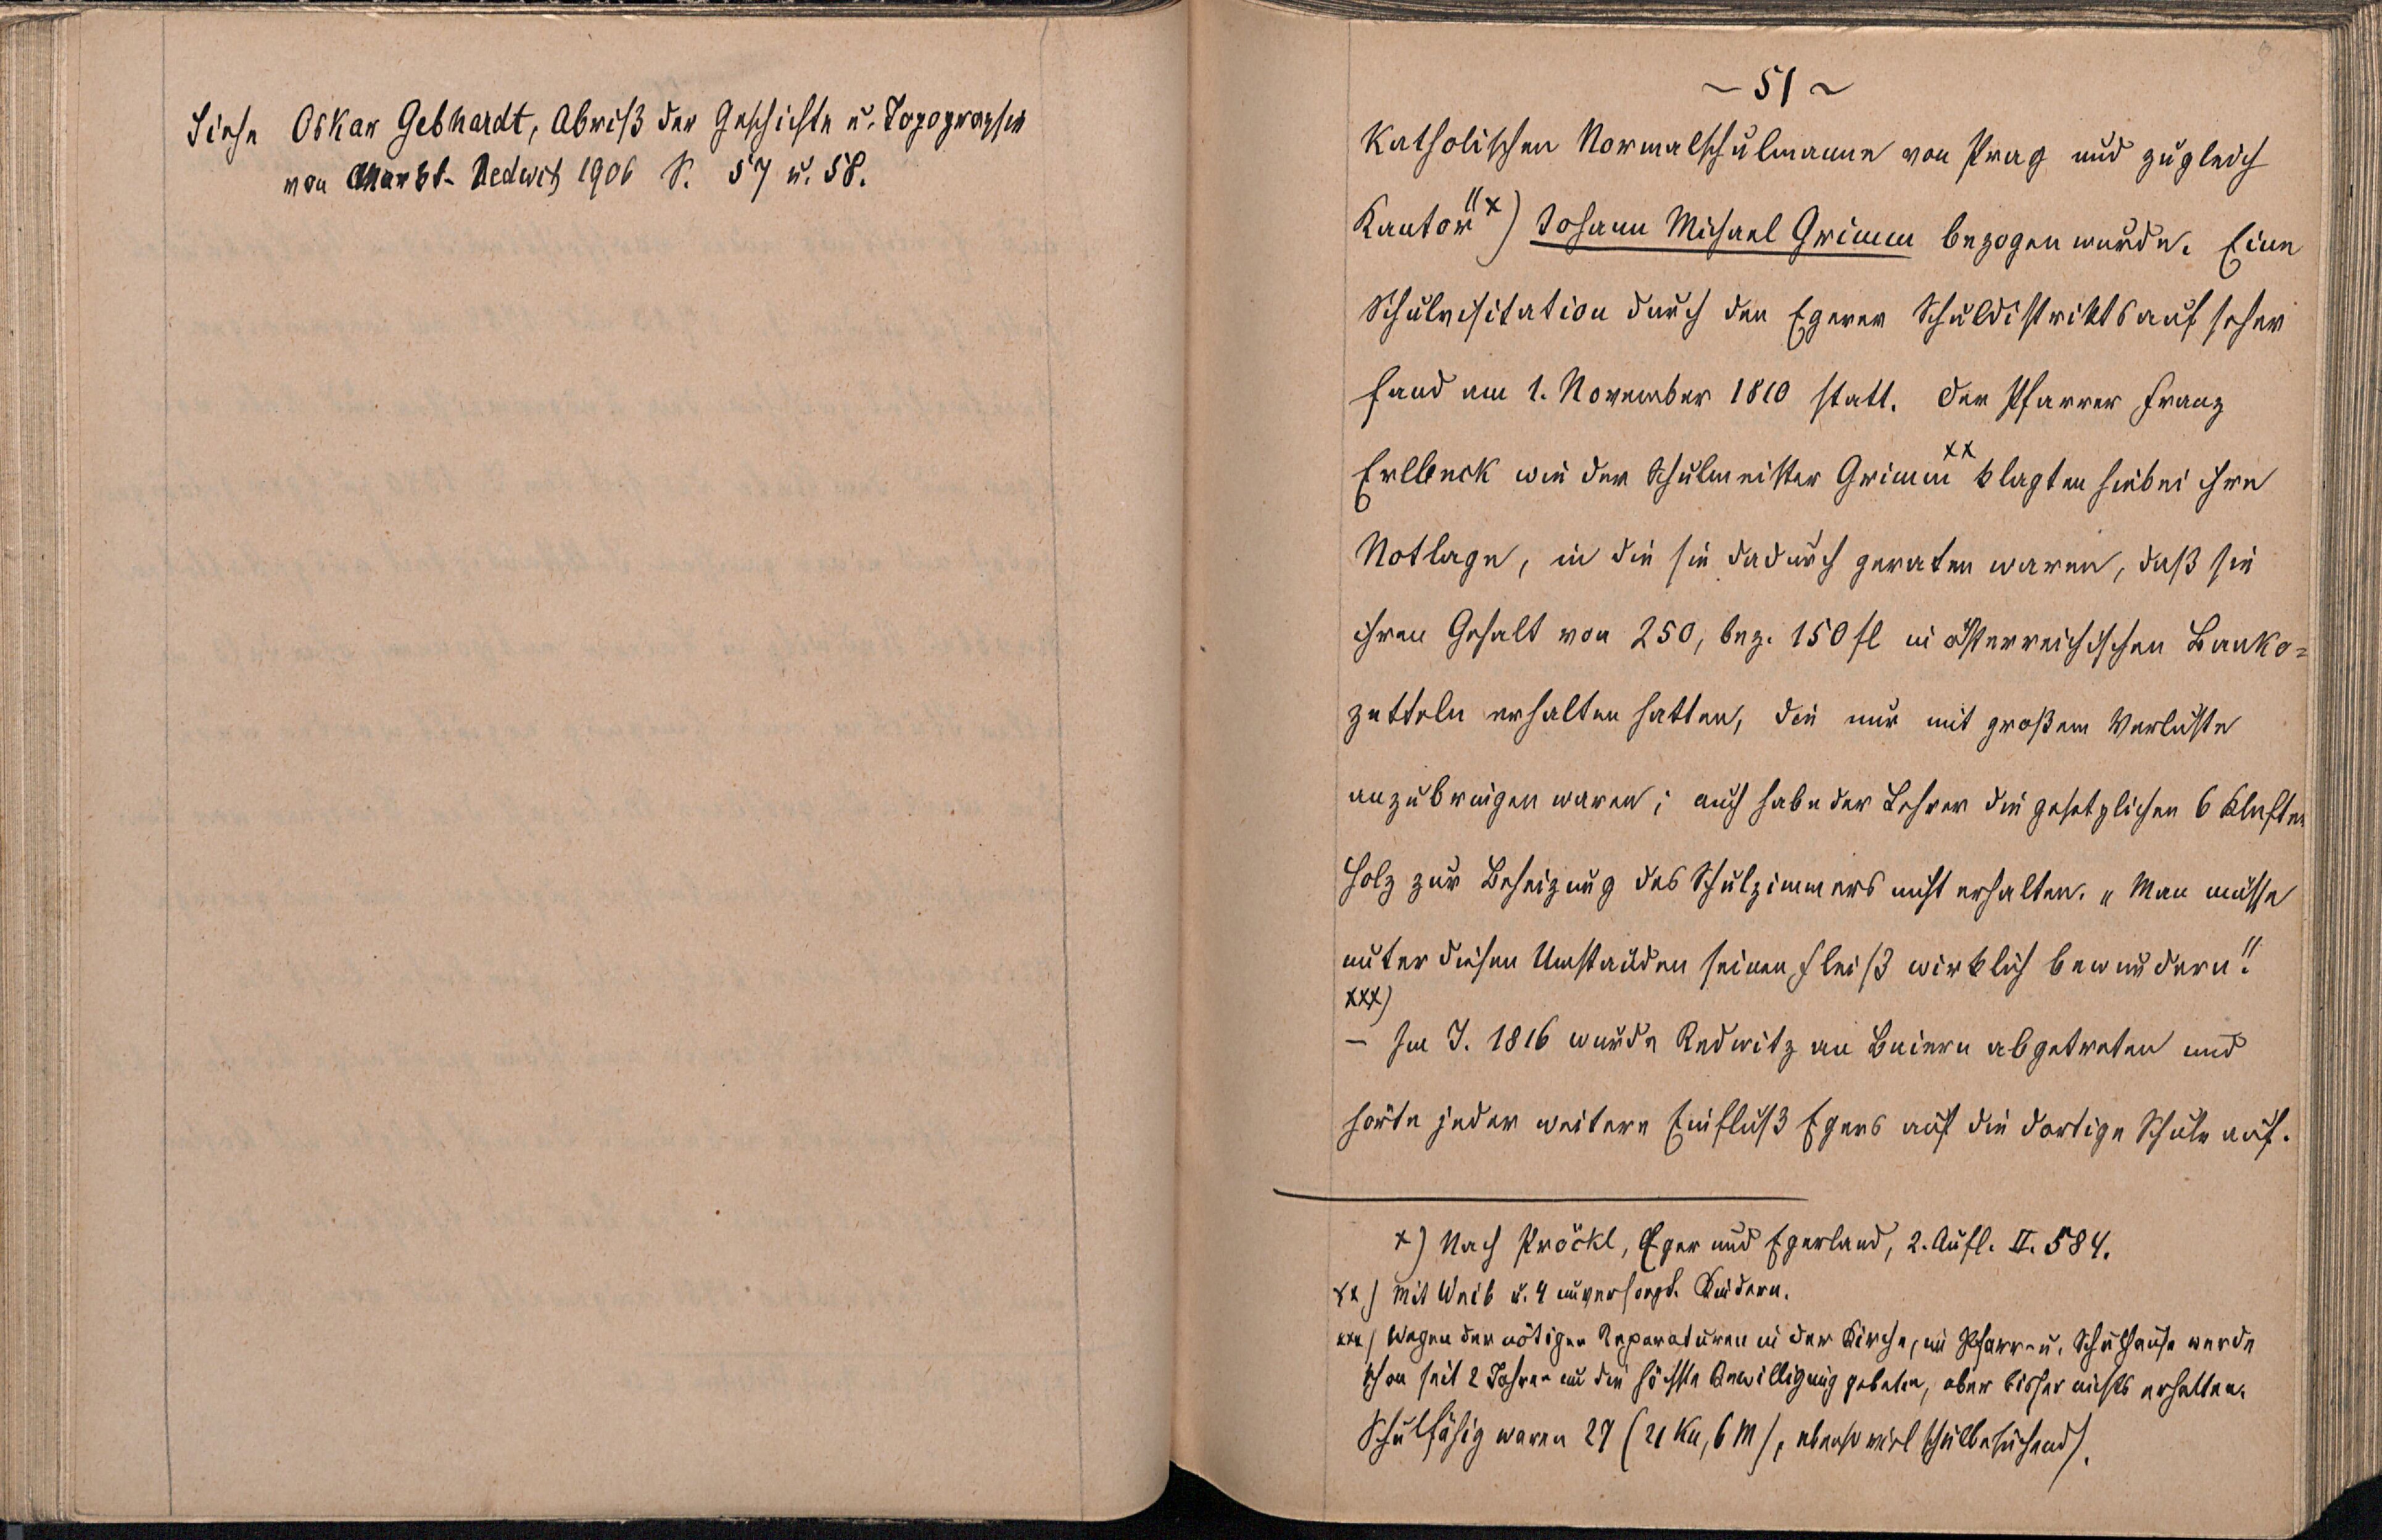 Siehe Oskar Gebhardt, Abriß der Geschichte u. Topographie
von Markt-Redwitz 1906 S. 57 u. 58.
~ 51 ~
katholischen Normalschulmanne von Prag und zugleich
Kantor" x) Johann Michael Grimm bezogen wurde. Eine
Schulvisitation durch den Egerer Schuldistriktsaufseher
fand am 1. November 1810 statt. Der Pfarrer Franz
Erllbeck wie der Schulmeister Grimm xx klagten hiebei ihre
Notlage, in die sie dadurch geraten waren, daß sie
ihren Gehalt von 250, bez. 150 fl in österreichischen Banko-
zetteln erhalten hatten, die nur mit großem Verluste
anzubringen waren; auch habe der Lehrer die gesetzlichen 6 Klafter
Holz zur Beheizung des Schulzimmers nicht erhalten. „Man müsse
unter diesen Umständen seinen Fleiß wirklich bewundern".
xxx)
– Im J. 1816 wurde Redwitz an Baiern abgetreten und
hörte jeder weitere Einfluß Egers auf die dortige Schule auf.
x) Nach Pröckl, Eger und Egerland, 2. Aufl. II. 584.
xx) Mit Weib u. 4 unversorgt. Kindern.
xxx) Wegen der nötigen Reparaturen in der Kirche, im Pfarr- u. Schulhause werde
schon seit 2 Jahren um die höchste Bewilligung gebeten, aber bisher nichts erhalten.
Schulfähig waren 27 (21 Kn, 6 M), ebenso viel schulbesuchend).